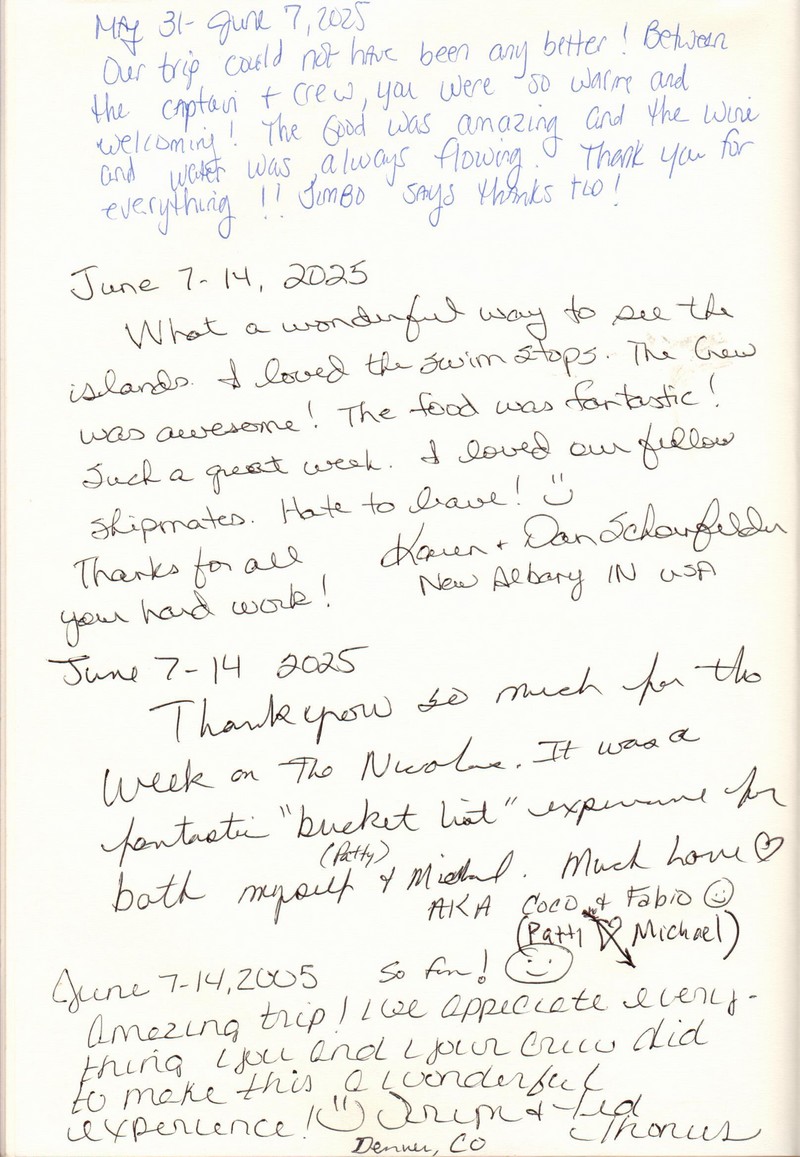 MAY 31 - June 7, 2025
Our trip could not have been any better! Between
the captain + crew, you were so warm and
welcoming! The food was amazing and the wine
and water was always flowing. Thank you for
everything!! JimBO says thanks too!
June 7-14, 2025
What a wonderful way to see the
islands. I loved the swim stops. The Crew
was awesome! The food was fantastic!
Such a great week. I loved our fellow
shipmates. Hate to leave!
Thanks for all
your hard work!
Karen + Dan
New Albany IN USA
June 7-14 2025
Thank you so much for the
week on The. It was a
fantastic "bucket list" experience for
(Patty)
both myself & Michael. Much Love
AKA Coco & Fabio
(Patti Michael)
June 7-14, 2005 So fun!
Amazing trip! We appreciate every-
thing you and your crew did
to make this a wonderful
experience! & Ted
Denver, CO